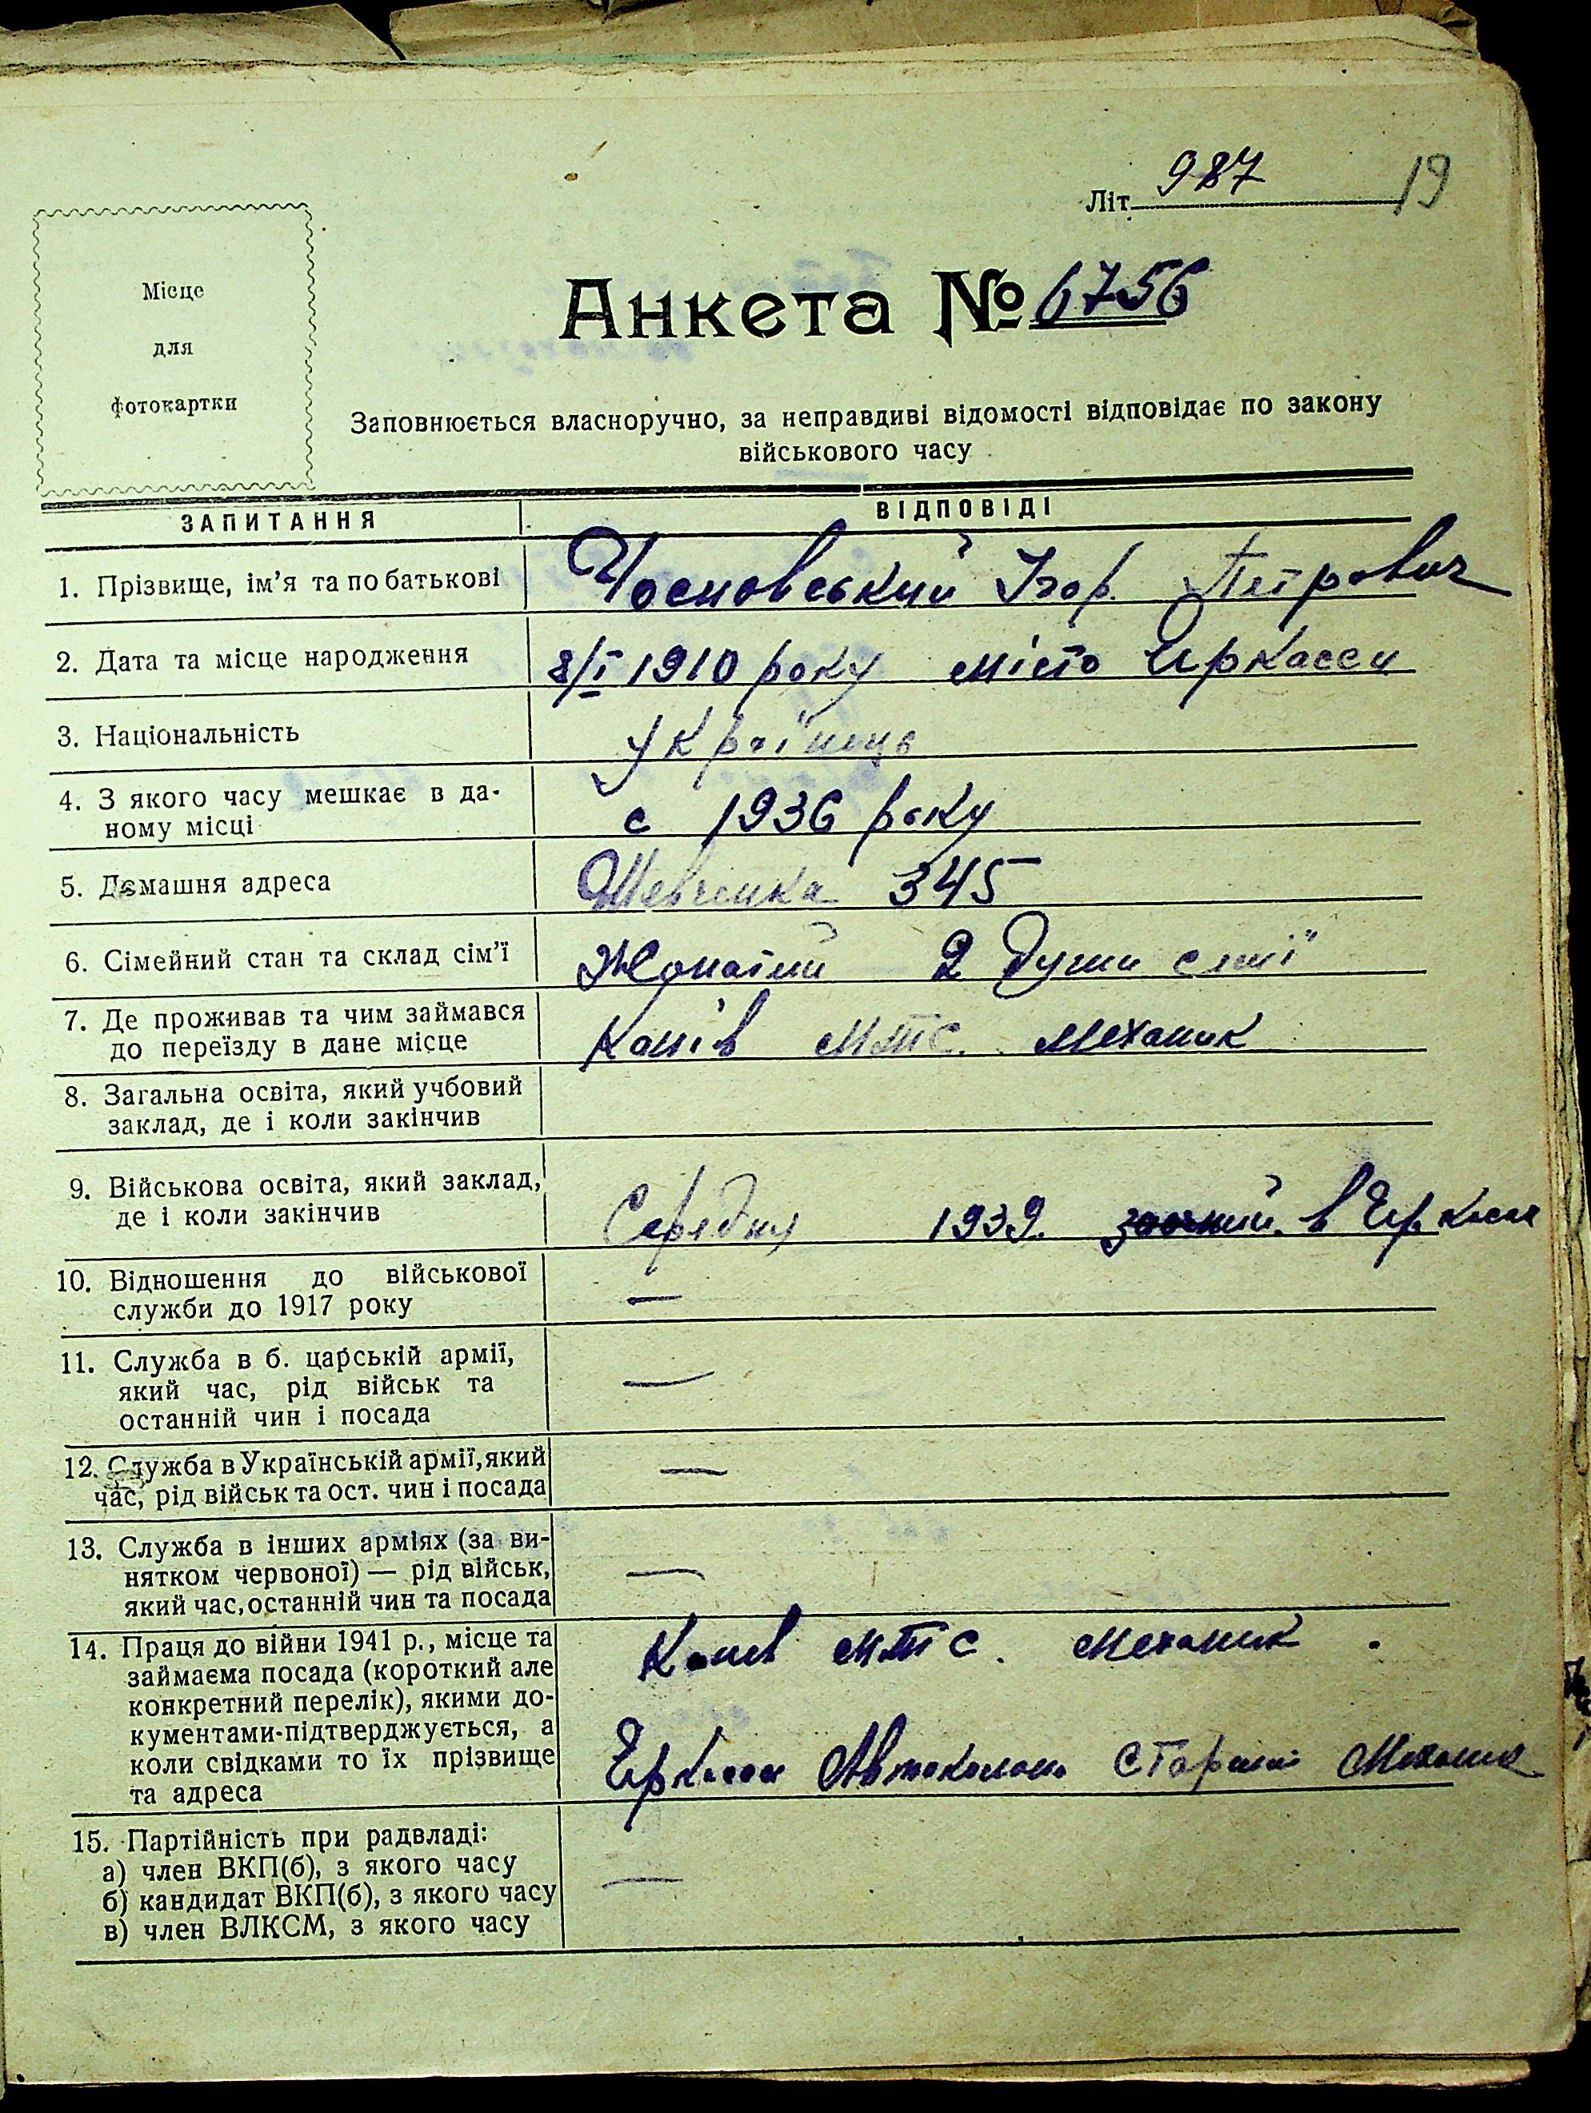 Літ. 987 19
Місце
для
фотокартки
Анкета № 6756
Заповнюється власноручно, за неправдиві відомості відповідає по закону
військового часу
ЗАПИТАННЯ ВІДПОВІДІ
1. Прізвище, ім’я та по батькові Чосновський Ігор Петрович
2. Дата та місце народження 8/I 1910 року місто Черкасси
3. Національність Українець
4. З якого часу мешкає в да-
ному місці с 1936 року
5. Домашня адреса Шевченка 345
6. Сімейний стан та склад сім’ї Жонатий 2 души
7. Де проживав та чим займався
до переїзду в дане місце Канів МТС. механик
8. Загальна освіта, який учбовий
заклад, де і коли закінчив
9. Військова освіта, який заклад,
де і коли закінчив Середня 1939. в Черкаси
10. Відношення до військової
служби до 1917 року —
11. Служба в б. царській армії,
який час, рід військ та
останній чин і посада —
12. Служба в Українській армії, який
час, рід військ та ост. чин і посада —
13. Служба в інших арміях (за ви-
нятком червоної) — рід військ,
який час, останній чин та посада —
14. Праця до війни 1941 р., місце та Канев МТС. механик.
займаєма посада (короткий але
конкретний перелік), якими до-
кументами-підтверджується, а
коли свідками то їх прізвище Черкаси Автоколона старший механик
та адреса
15. Партійність при радвладі:
а) член ВКП(б), з якого часу —
б) кандидат ВКП(б), з якого часу
в) член ВЛКСМ, з якого часу